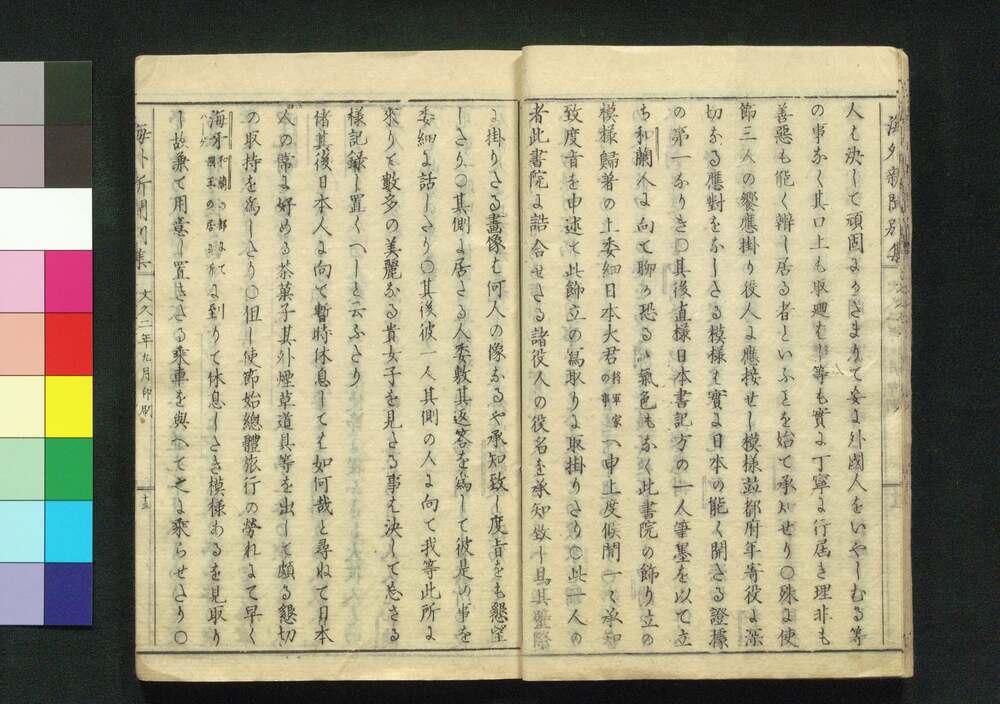 人も決して頑固にかさまりて妄に外國人をいやしむる等
の事なく其口上も取廻もし等も實に丁寧に行届き理非も
善惡も能く辨し居る者といふことを始て承知せり〇殊に使
節三人の饗應掛り役人に應接せし模様並都府年寄役に深
切なる應對をなしたる模様も實に日本の能く開たる證據
の第一なりき〇其後直様日本書記方の一人筆墨を以て立
ち和蘭人に向て聊か恐るゝ氣色もなく此書院の飾り立の
模様歸着の上委細日本大君將軍家の事へ申上度候間一々承知
致度旨を申述て此飾立の寫取りに取掛りたり〇此一人の
者此書院に詰合せたる諸役人の役名を承知致し且其壁際
に掛りたる畫像は何人の像なるや承知致し度旨をも懇望
したり〇其側に居たる人委敷其返答を為して彼是の事を
委細に話したり〇其後彼一人其側の人に向て我等此所に
來りて數多の美麗なる貴女子を見たる事は決して忘さる
様記録し置くへしと云ふたり
偖其後日本人に向て暫時休息しても如何哉と尋ねて日本
人の常に好める茶菓子其外煙草道具等を出して頗る懇切
の取持を為したり〇但し使節始總體旅行の勞れにて早く
海牙和蘭の都にて國王の居る所に到りて休息したき模様あるを見取り
し故兼て用意し置きたる乘車を與へて之に乘らせたり〇
海外新聞別集
文久二年九月印刷
十三